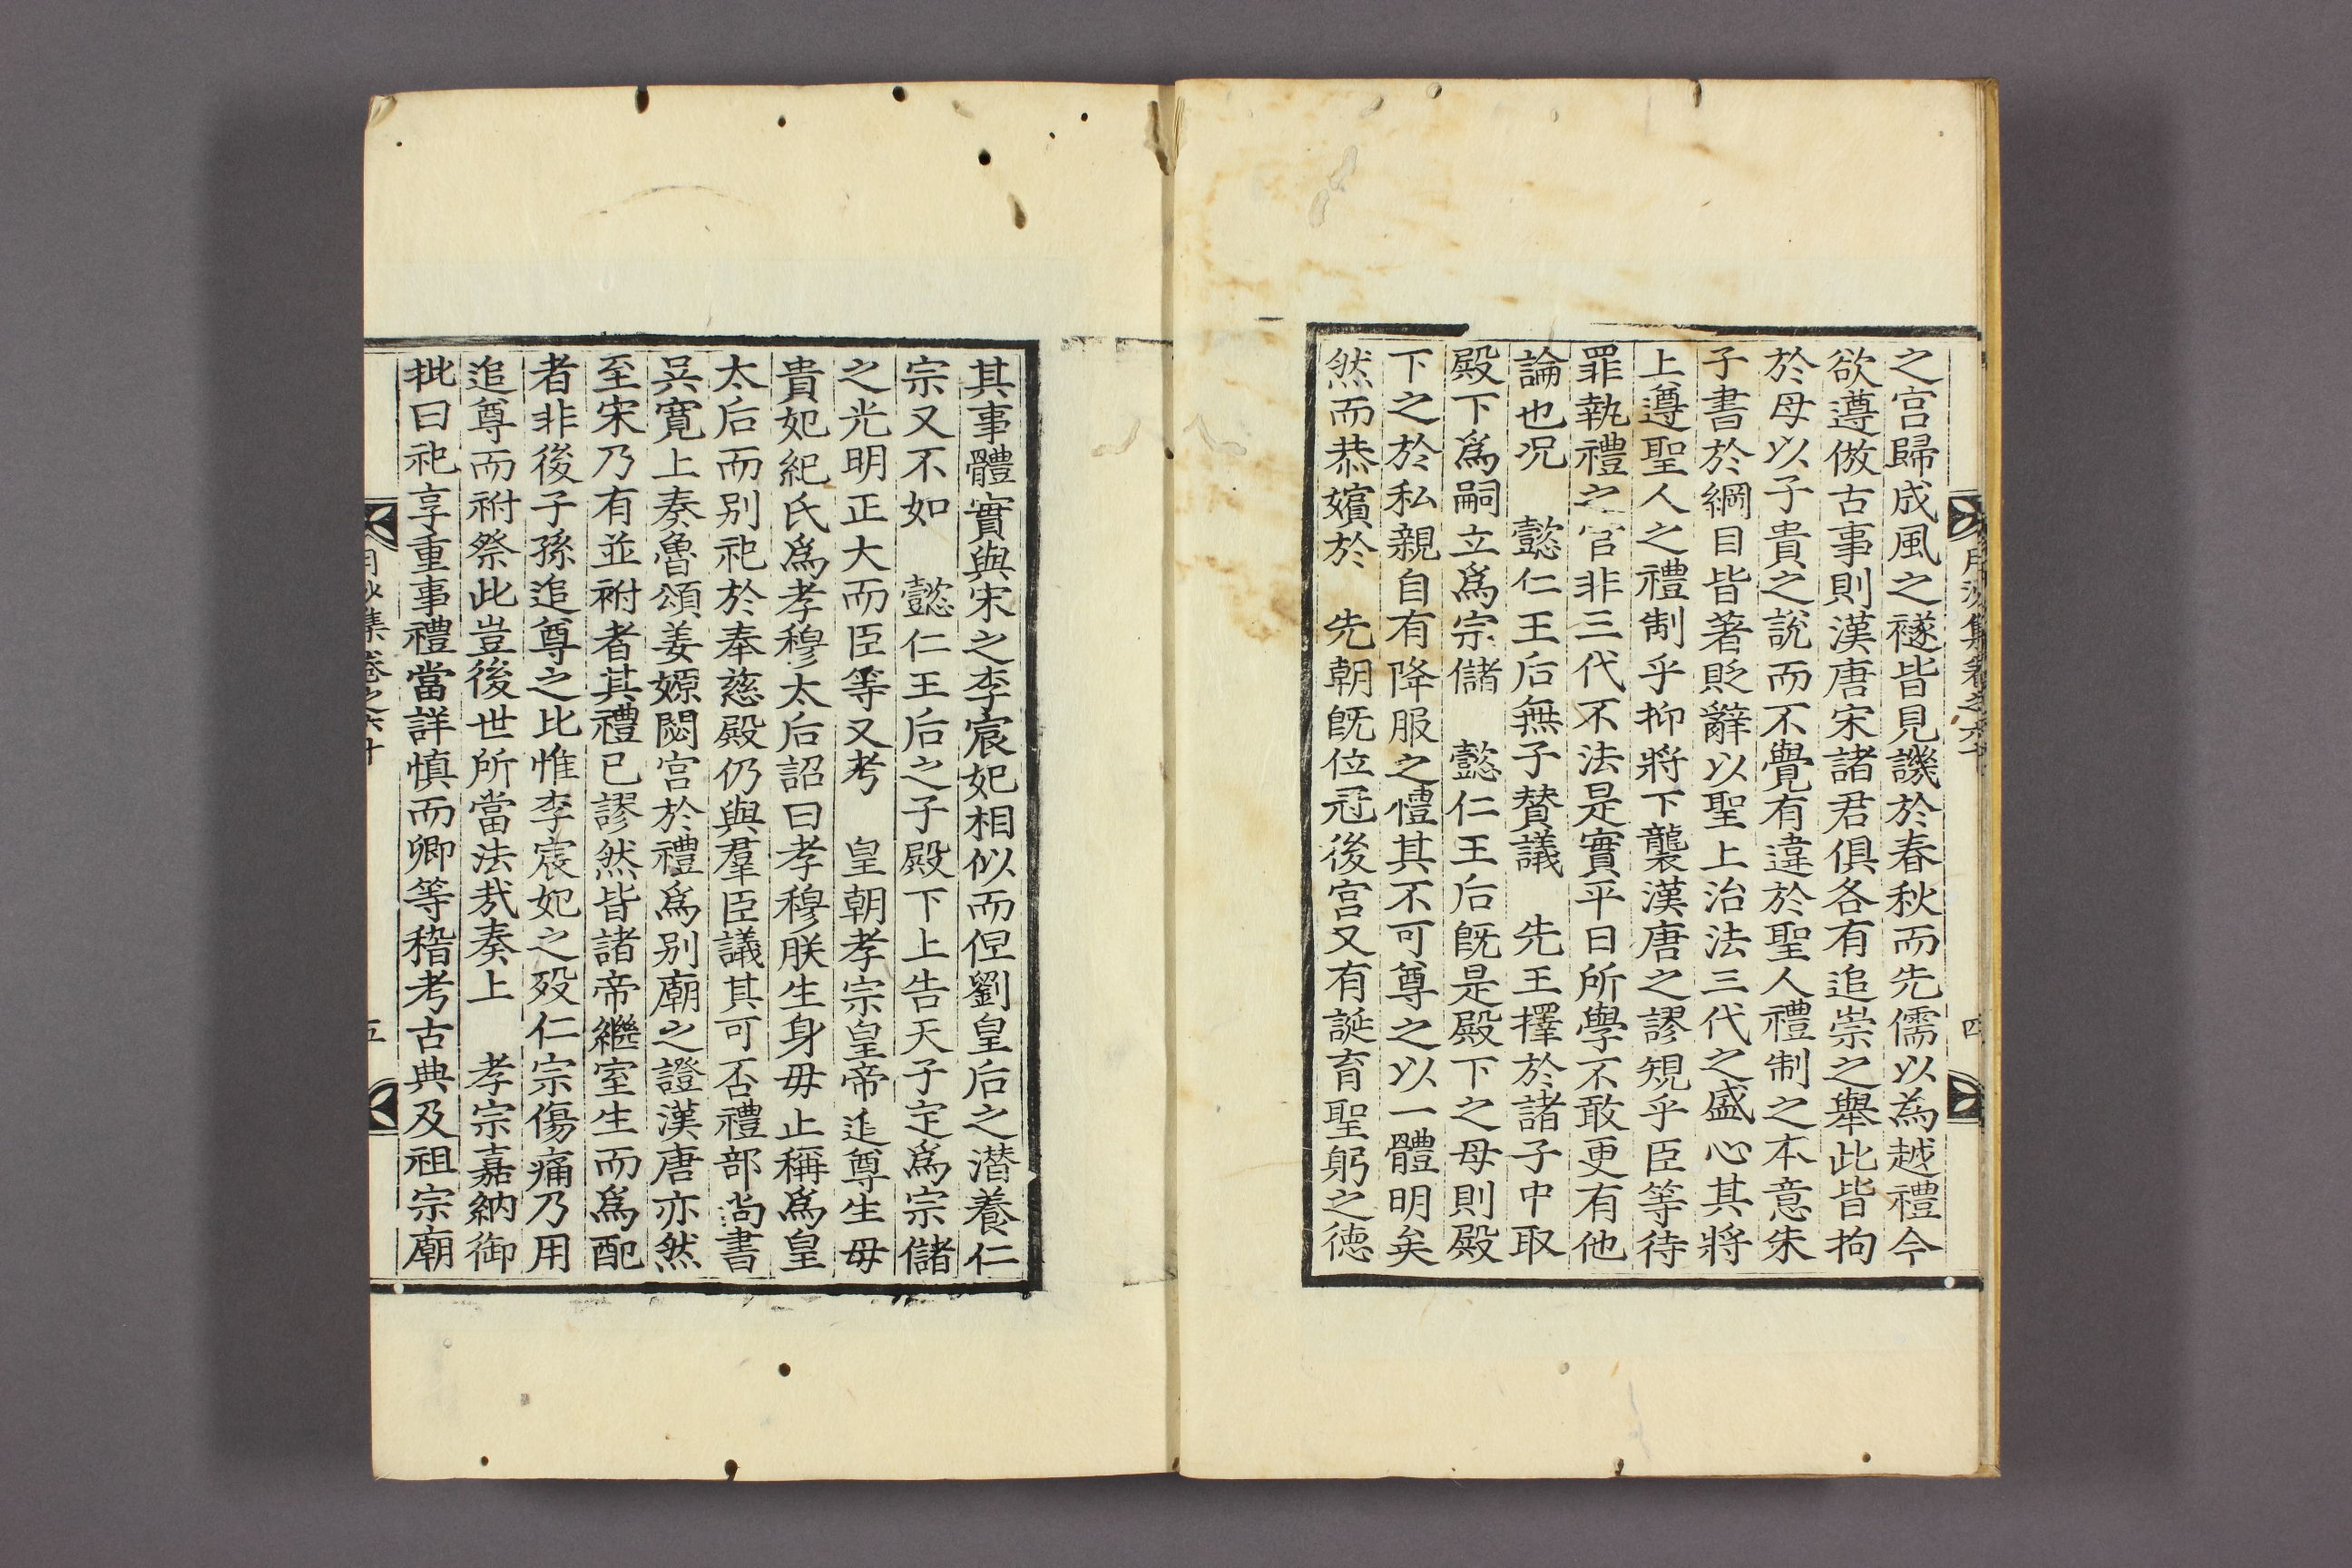 之宫歸成風之襚皆見譏於春秋而先儒以為越禮今
欲遵倣古事則漢唐宋諸君俱各有追崇之舉此皆拘
於母以子貴之說而不覺有違於聖人禮制之本意朱
子書於綱目皆著貶辭以聖上治法三代之盛心其將
上遵聖人之禮制乎抑將下襲漢唐之謬規乎臣等待
罪執禮之官非三代不法是實平日所學不敢更有他
論也况 懿仁王后無子賛議 先王擇於諸子中取
殿下爲嗣立爲宗儲 懿仁王后旣是殿下之母則殿
下之於私親自有降服之禮其不可尊之以一體明矣
然而恭嬪於 先朝旣位冠後宫又有誕育聖躬之德
月沙集卷之六十
四
其事體實與宋之李宸妃相似而但劉皇后之潜養仁
宗又不如 懿仁王后之子殿下上告天子定爲宗儲
之光明正大而臣等又考 皇朝孝宗皇帝追尊生毋
貴妃紀氏爲孝穆太后詔曰孝穆朕生身毋止稱爲皇
太后而别祀於奉慈殿仍與羣臣議其可否禮部尚書
吳寛上奏魯頌姜嫄閟宫於禮爲别廟之證漢唐亦然
至宋乃有並祔者其禮已謬然皆諸帝繼室生而爲配
者非後子孫追尊之比惟李宸妃之殁仁宗傷痛乃用
追尊而祔祭此豈後世所當法㢤奏上 孝宗嘉納御
批曰祀享重事禮當詳慎而卿等稽考古典及祖宗廟
月沙集卷之六十
五